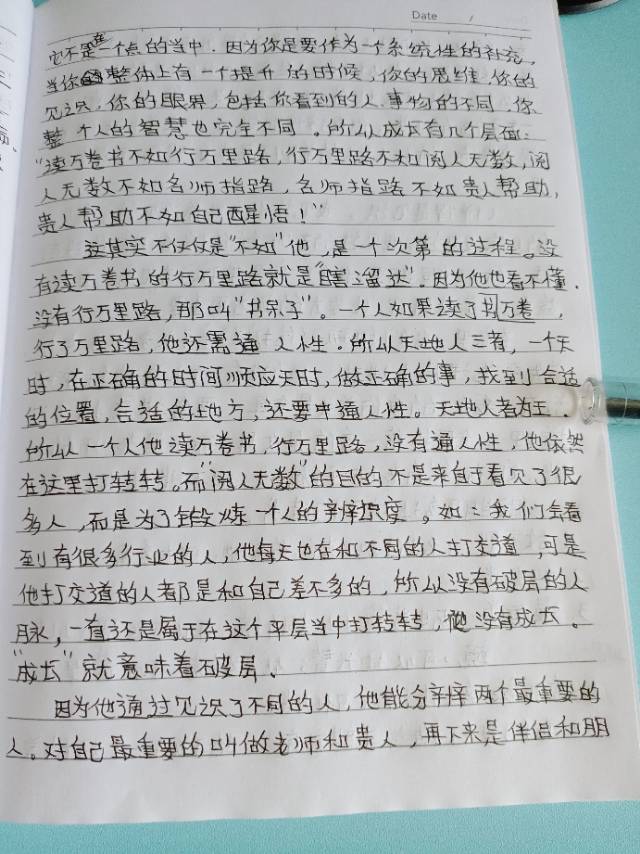 Date /
它不是在一个点的当中. 因为你是要作为一个系统性的补充,
当你整体上有一个提升的时候, 你的思维, 你的
见识, 你的眼界, 包括你看到的人.事物的不同, 你
整个人的智慧也完全不同。所以成长有几个层面:
"读万卷书不如行万里路, 行万里路不如阅人无数, 阅
人无数不如名师指路, 名师指路不如贵人帮助,
贵人帮助不如自己醒悟!"
这其实不仅仅是"不如"他, 是一个次第的过程。没
有读万卷书的行万里路就是"瞎溜达". 因为他也看不懂.
没有行万里路, 那叫"书呆子"。一个人如果读了万卷,
行了万里路, 他还需通人性. 所以天地人三者, 一个天
时, 在正确的时间顺应天时, 做正确的事, 找到合适
的位置, 合适的地方, 还要中通人性。天地人者为王.
所以一个人他读万卷书, 行万里路, 没有通人性, 他依然
在这里打转转。而"阅人无数"的目的不是来自于看见了很
多人, 而是为了锻炼一个人的辨识度。如: 我们会看
到有很多行业的人, 他每天也在和不同的人打交道, 可是
他打交道的人都是和自己差不多的, 所以没有破层的人
脉, 一直还是属于在这个平层当中打转转, 他没有成长。
"成长"就意味着破层.
因为他通过见识了不同的人, 他能分辨两个最重要的
人。对自己最重要的叫做老师和贵人, 再下来是伴侣和朋